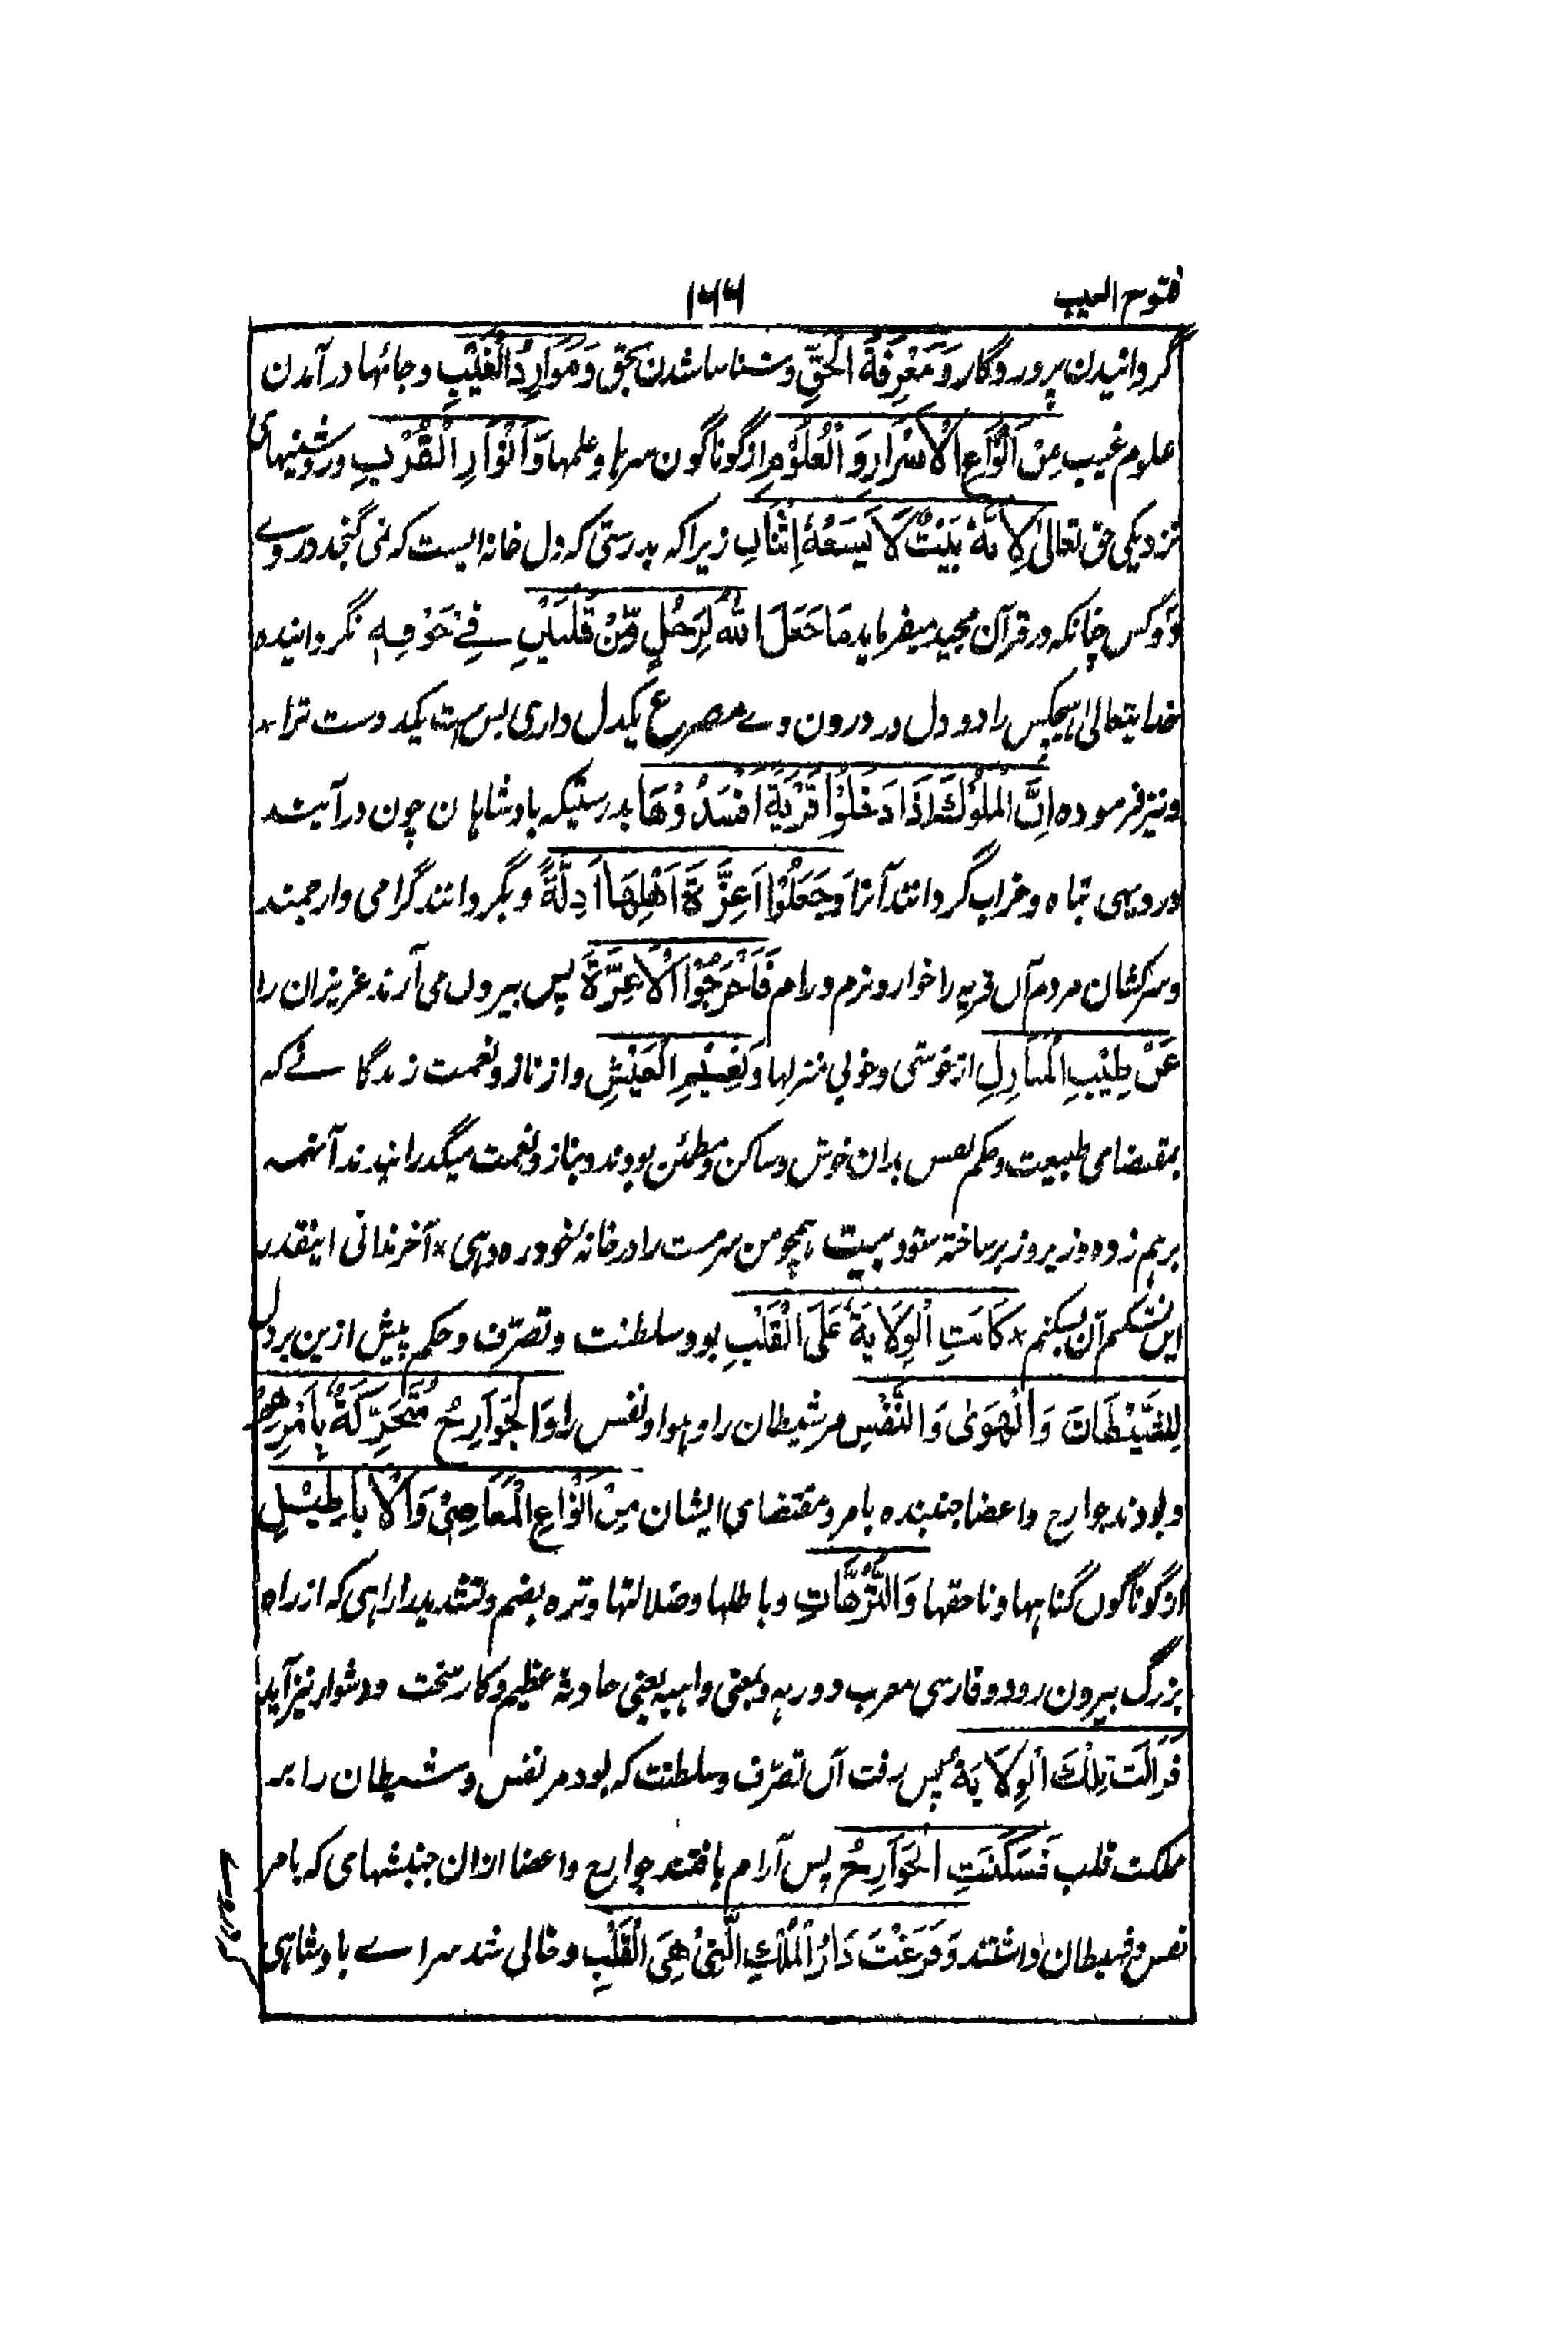 فتوح الغیب ۱۶۶
گردانیدن پروردگار وَمَعْرِفَةِ الْحَقِّ وشناسا شدن بحق وَمَوَارِدُ الْغَيْبِ وجائہا در آمدن
علوم غیب مِنْ اَنْوَاعِ الْاَسْرَارِ وَالْعُلُوْمِ از گوناگون سرہا و علمہا وَاَنْوَارِ الْقُرْبِ و روشنیہای
نزدیکی حق تعالیٰ لِاَنَّهٗ بَيْتٌ لَا يَسَعُهٗ اِثْنَانِ زیرا کہ بدرستی کہ دل خانہ ایست کہ نمی گنجد در وے
دو کس چنانکہ در قرآن مجید میفرماید مَا جَعَلَ اللّٰهُ لِرَجُلٍ مِّنْ قَلْبَيْنِ فِيْ جَوْفِهٖ نگردانیدہ
خدایتعالیٰ ہیچکس را دو دل در درون وے مصرع یکدل داری بس ست یکدوست ترا *
و نیز فرمودہ اِنَّ الْمُلُوْكَ اِذَا دَخَلُوْا قَرْيَةً اَفْسَدُوْهَا بدرستیکہ بادشاہان چون در آیند
در دیہی تباہ و خراب گردانند آنرا وَجَعَلُوْا اَعِزَّةَ اَهْلِهَا اَذِلَّةً و بگردانند گرامی و ارجمند
و سرکشان مردم آں قریہ را خوار و نرم و رام فَاَخْرَجُوْا الْاَعِزَّةَ پس بیروں می آرند عزیزان را
عَنْ طِيْبِ الْمَنَازِلِ از خوشی و خوبی منزلہا وَنَعِيْمِ الْعَيْشِ و از ناز و نعمت زندگانے کہ
بمقتضای طبیعت و حکم نفس بدان خوش و ساکن و مطمئن بودند و بناز و نعمت میگذرانیدند آنہمہ
برہم زدہ و زیر و زبر ساختہ شود بیت ہمچو من سرمست را در خانۂ خود رہ دہی * آخر ندانی اینقدر
این بشکنم آن بشکنم * كَانَتِ الْوِلَايَةُ عَلَى الْقَلْبِ بود سلطنت و تصرّف و حکم پیش ازین بر دل
لِلشَّيْطَانِ وَالْهَوٰى وَالنَّفْسِ مر شیطان را و ہوا و نفس را وَالْجَوَارِحُ مُتَحَرِّكَةٌ بِاَمْرِهِمْ
و بودند جوارح و اعضا جنبندہ بامر و مقتضای ایشان مِنْ اَنْوَاعِ الْمَعَاصِيْ وَالْاَبَاطِيْلِ
از گوناگوں گناہہا و ناحقہا وَالتُّرَّهَاتِ و باطلہا و ضلالتہا و ترہ بضم و تشدید را راہی کہ از راہ
بزرگ بیرون رود و فارسی معرب دو رہہ و بمعنی واہیہ یعنی حادثۂ عظیم و کار سخت و دشوار نیز آید
فَزَالَتْ تِلْكَ الْوِلَايَةُ پس رفت آں تصرّف و سلطنت کہ بود مر نفس و شیطان را بر
مملکت قلب فَسَكَنَتِ الْجَوَارِحُ پس آرام یافتند جوارح و اعضا ازان جنبشہای کہ بامر
نفس و شیطان داشتند وَفَرَغَتْ دَارُ الْمُلْكِ الَّتِيْ هِيَ الْقَلْبُ و خالی شد سراے بادشاہی